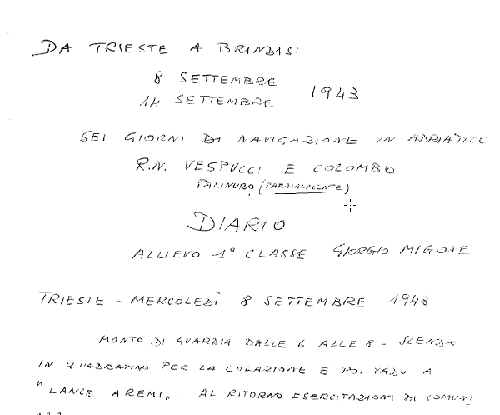 DA TRIESTE A BRINDISI
8 SETTEMBRE
14 SETTEMBRE 1943
SEI GIORNI DI NAVIGAZIONE IN ADRIATICO
R.N. VESPUCCI E COLOMBO
PALINURO (PARZIALMENTE)
DIARIO
ALLIEVO 1ª CLASSE GIORGIO MIGONE
TRIESTE - MERCOLEDÌ 8 SETTEMBRE 1943
MONTO DI GUARDIA DALLE 6 ALLE 8 - SCENDO
IN QUADRATINO PER LA COLAZIONE E VADO A
"LANCE A REMI. AL RITORNO ESERCITAZIONI DI COMUNI